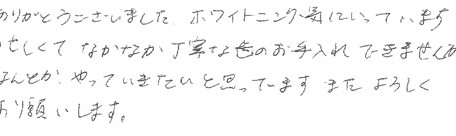 ありがとうございました。ホワイトニング気にいっています
忙しくて なかなか 丁寧な歯のお手入れ できませんが
なんとか やっていきたいと思ってます また よろしく
お願いします。